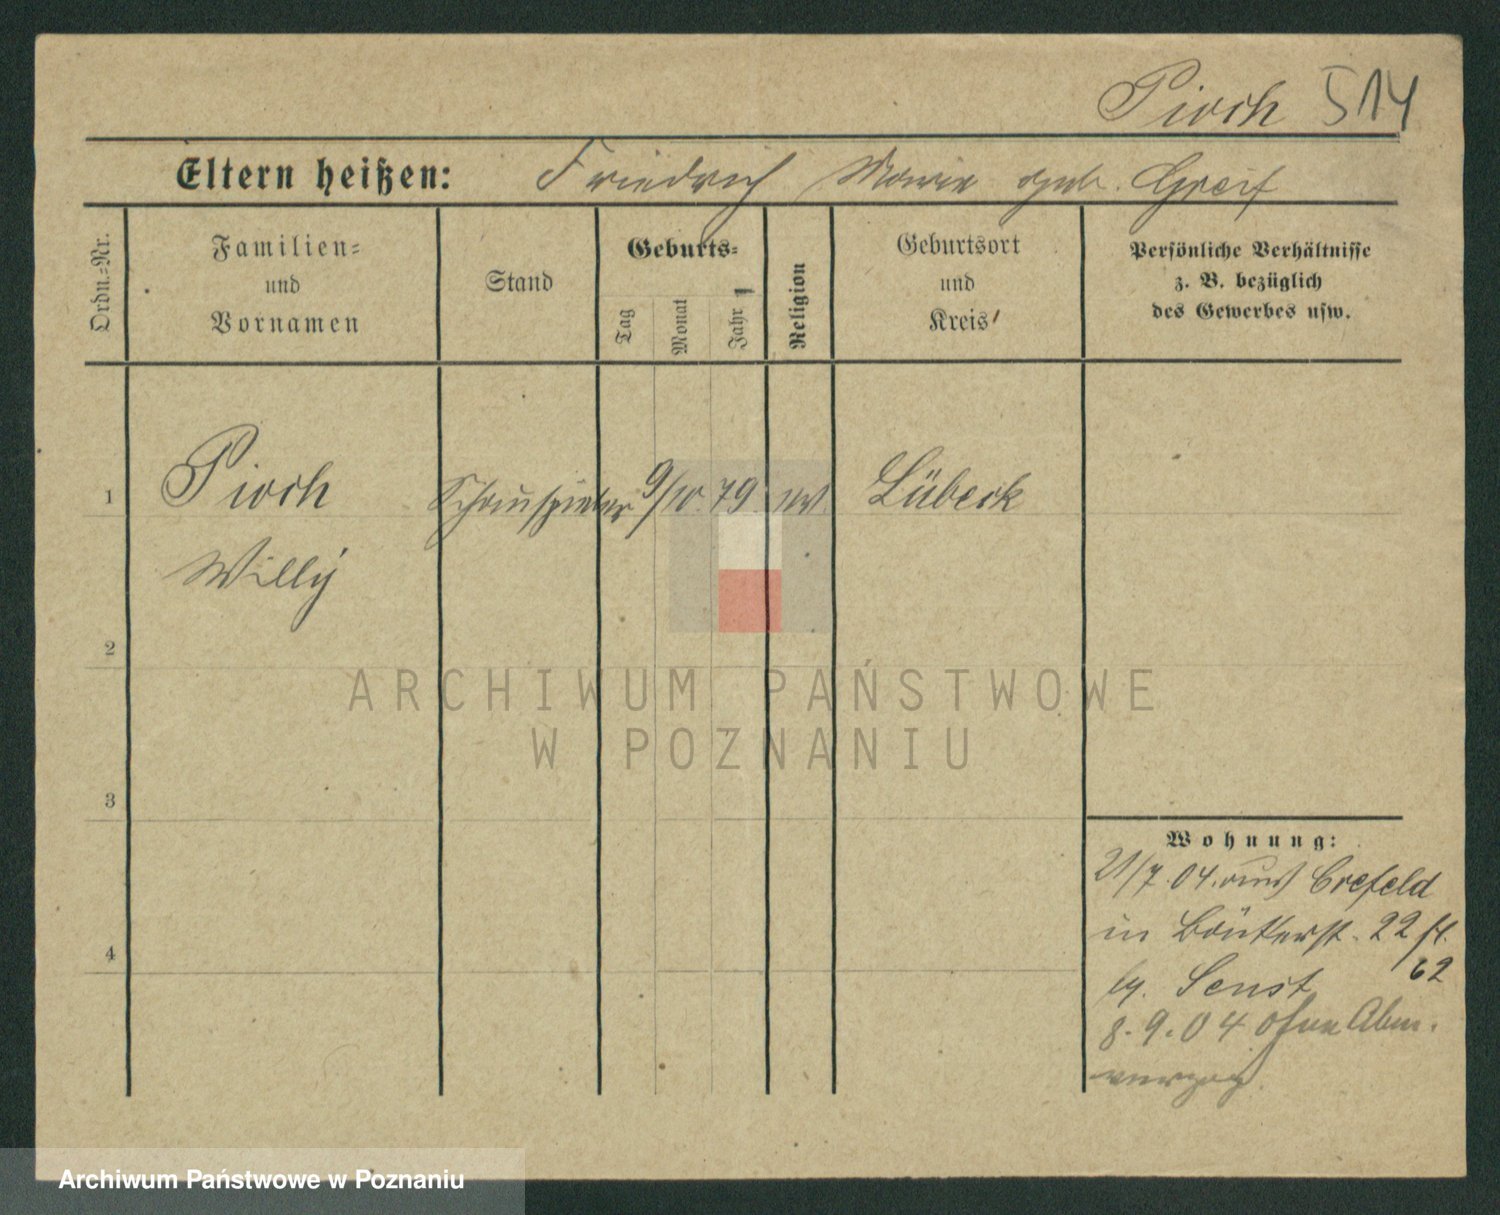 Pioch 514
Eltern heißen: Friedrich Marie geb. Greif
Ordn.=Nr.
Familien=
und
Vornamen
Stand
Geburts=
Tag
Monat
Jahr
Religion
Geburtsort
und
Kreis
Persönliche Verhältnisse
z. B. bezüglich
des Gewerbes usw.
1
Pioch
Schauspieler
9/10. 79
ev.
Lübeck
Willÿ
2
ARCHIWUM PAŃSTWOWE
W POZNANIU
3
4
Wohnung:
21/7. 04. aus Crefeld
in 22
62
Senst
8. 9. 04 ohne Abm.
verzog.
Archiwum Państwowe w Poznaniu